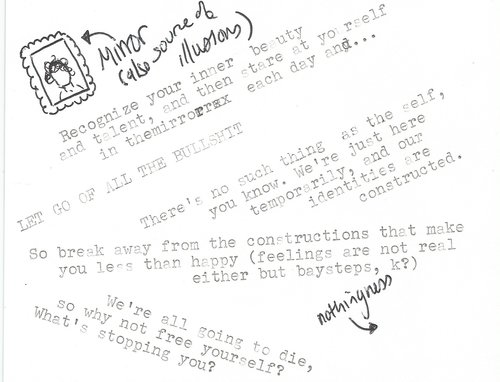 Mirror
(also source of
illusions)
Recognize your inner beauty
and talent, and then stare at yourself
in themirrorrex each day and...
LET GO OF ALL THE BULLSHIT
There's no such thing as the self,
you know. We're just here
temporarily, and our
identities are
constructed.
So break away from the constructions that make
you less than happy (feelings are not real
either but baysteps, k?)
nothingness
We're all going to die,
so why not free yourself?
What's stopping you?